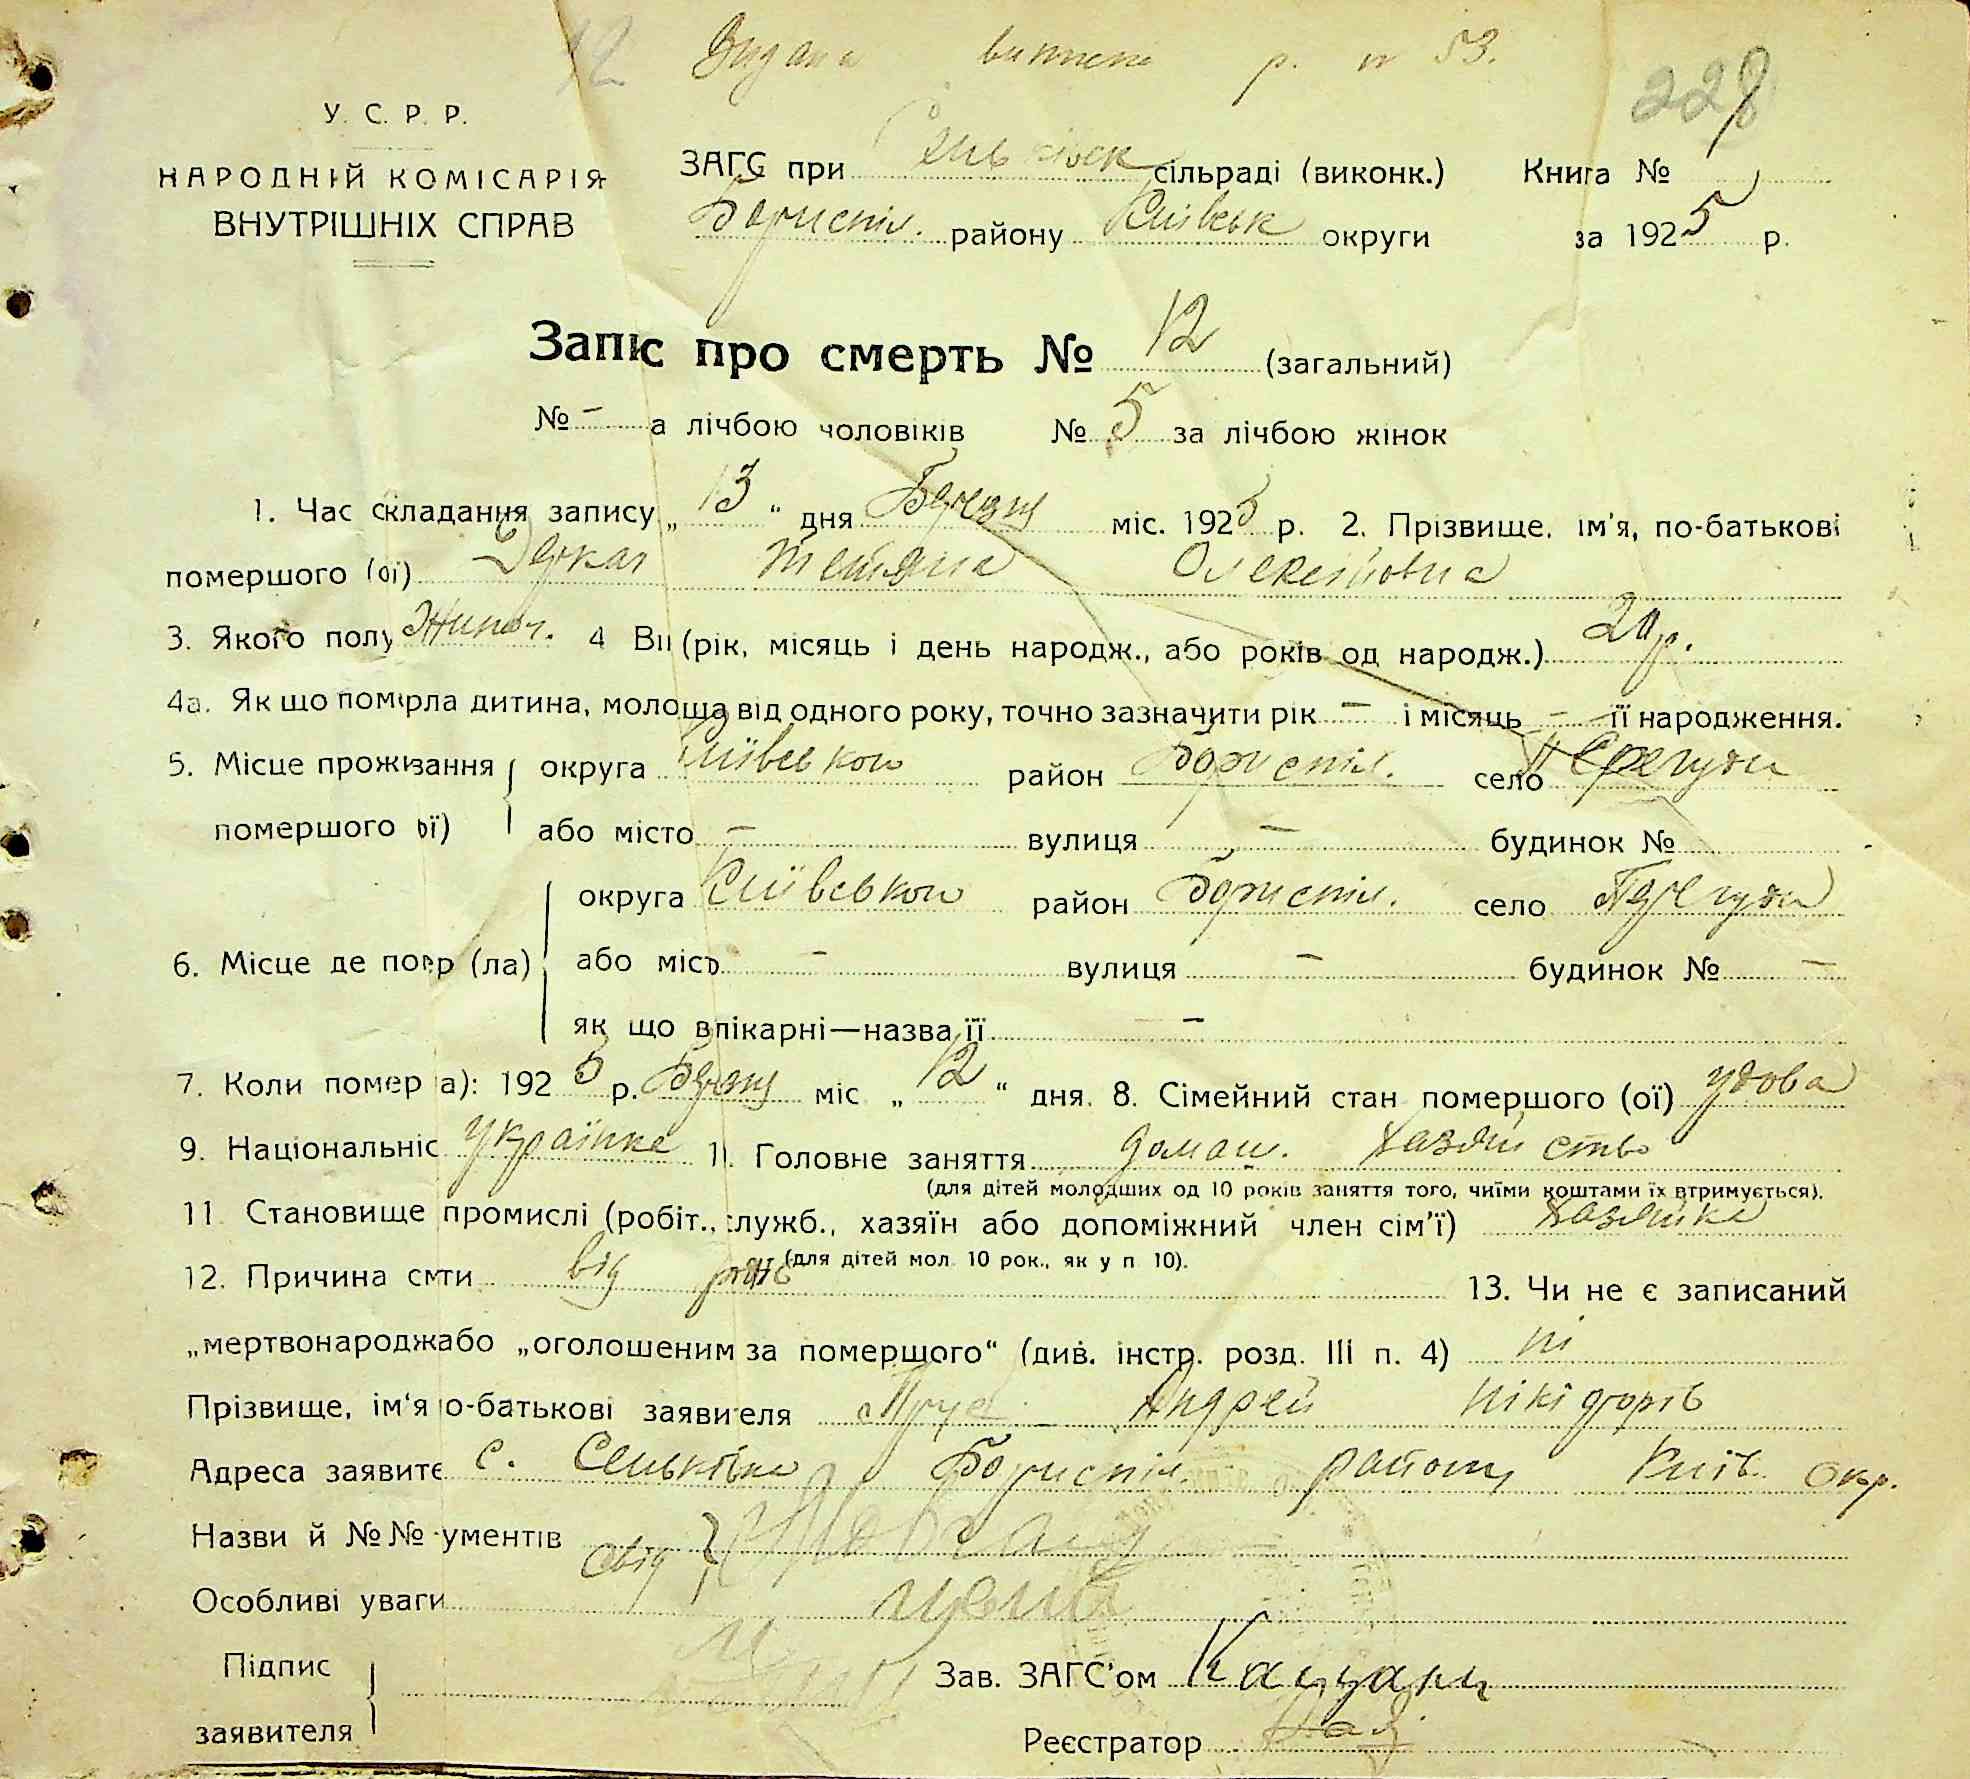 12 Видана виписка р. № 53.
228
У. С. Р. Р.
НАРОДНІЙ КОМІСАРІЯ
ВНУТРІШНІХ СПРАВ
ЗАГС при Сеньківск сільраді (виконк.) Книга №
Бориспіл. району Київськ округи за 1925 р.
Запис про смерть № 12 (загальний)
№ – а лічбою чоловіків № 5 за лічбою жінок
1. Час складання запису „ 13 “ дня Березня міс. 1925 р. 2. Прізвище, ім'я, по-батькові
помершого (ої) Деркач Тетяна Олексіївна
3. Якого полу Жіноч. 4 Ви (рік, місяць і день народж., або років од народж.) р.
4а. Як що померла дитина, молоща від одного року, точно зазначити рік – і місяць – її народження.
5. Місце проживання округа Київського район Бориспіл. село Перегуди
помершого ої) або місто – вулиця – будинок №
округа Київського район Бориспіл. село Перегуди
6. Місце де помер (ла) або місто – вулиця – будинок № –
як що в лікарні—назва її –
7. Коли помер а): 1925 р. Березня міс „ 12 “ дня. 8. Сімейний стан помершого (ої) удова
9. Національніс Українка 1). Головне заняття домаш. хазяйство
(для дітей молодших од 10 років заняття того, чиїми коштами їх втримується).
11 Становище промислі (робіт., служб., хазяїн або допоміжний член сім'ї) хазяйка
(для дітей мол. 10 рок., як у п 10).
12. Причина смти від 13. Чи не є записаний
„мертвонароджабо „оголошеним за помершого“ (див. інстр. розд. III п. 4) ні
Прізвище, ім'я о-батькові заявителя Андрей Нікіфорів
Адреса заявите с. Сеньківка Бориспіл. району Київ. Окр.
Назви й №№ ументів
Особливі уваги
Підпис
заявителя
Зав. ЗАГС'ом
Реєстратор